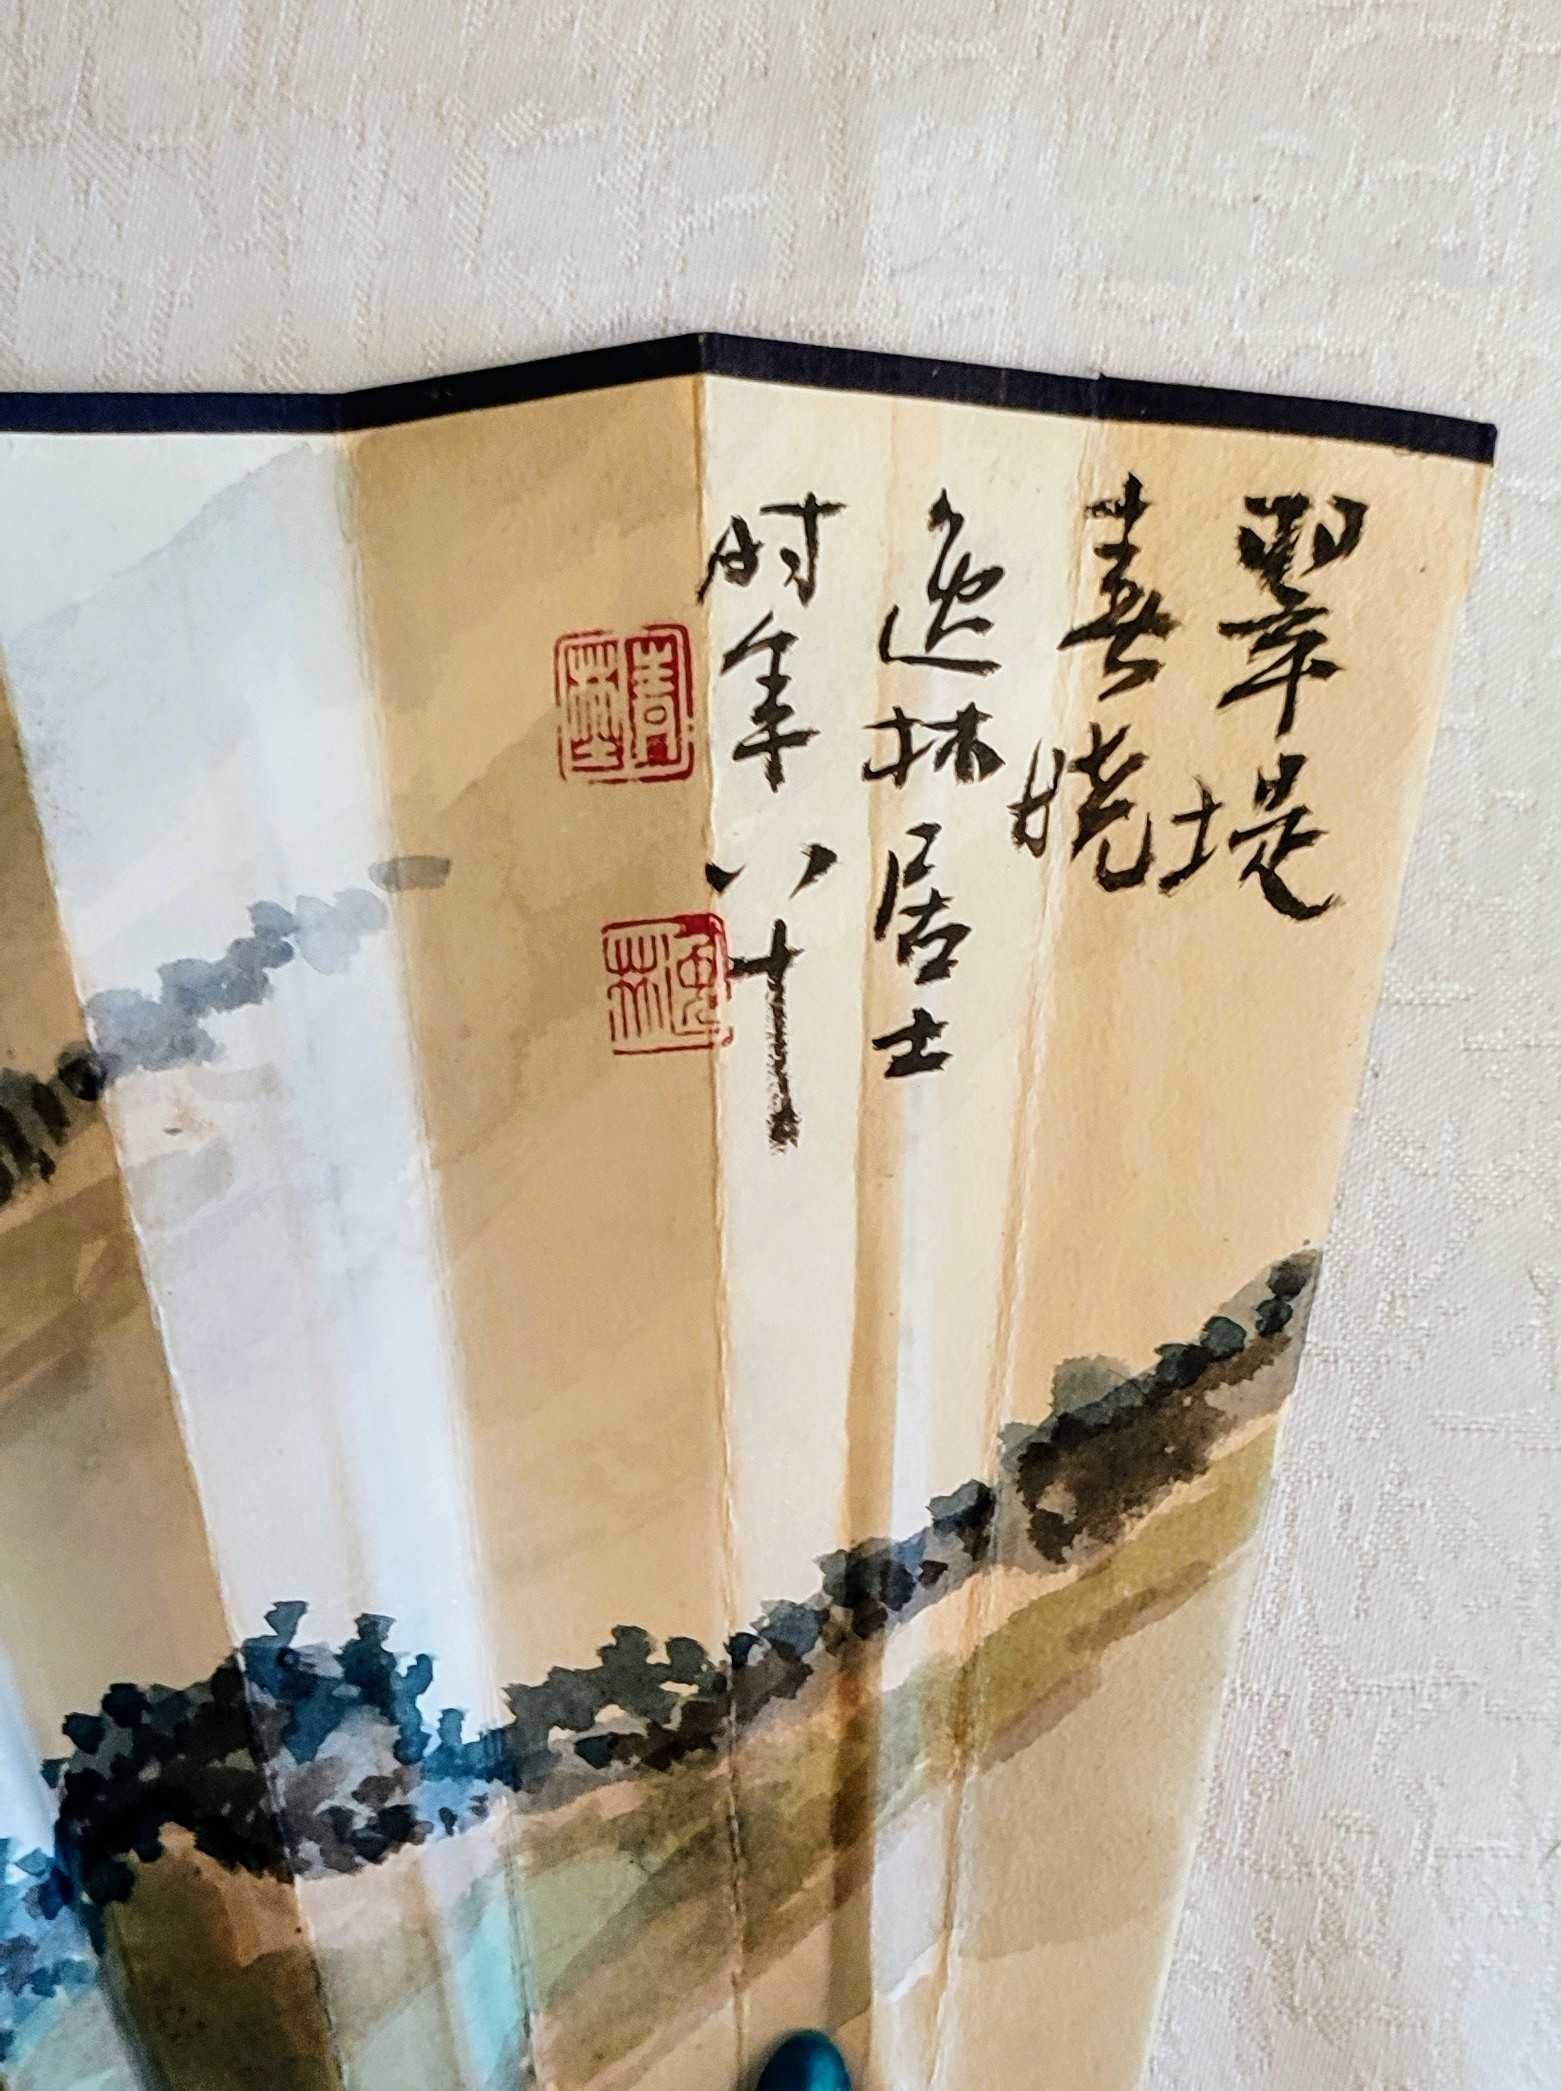 翠堤
春晓
逸林居士
时年八十
逸林